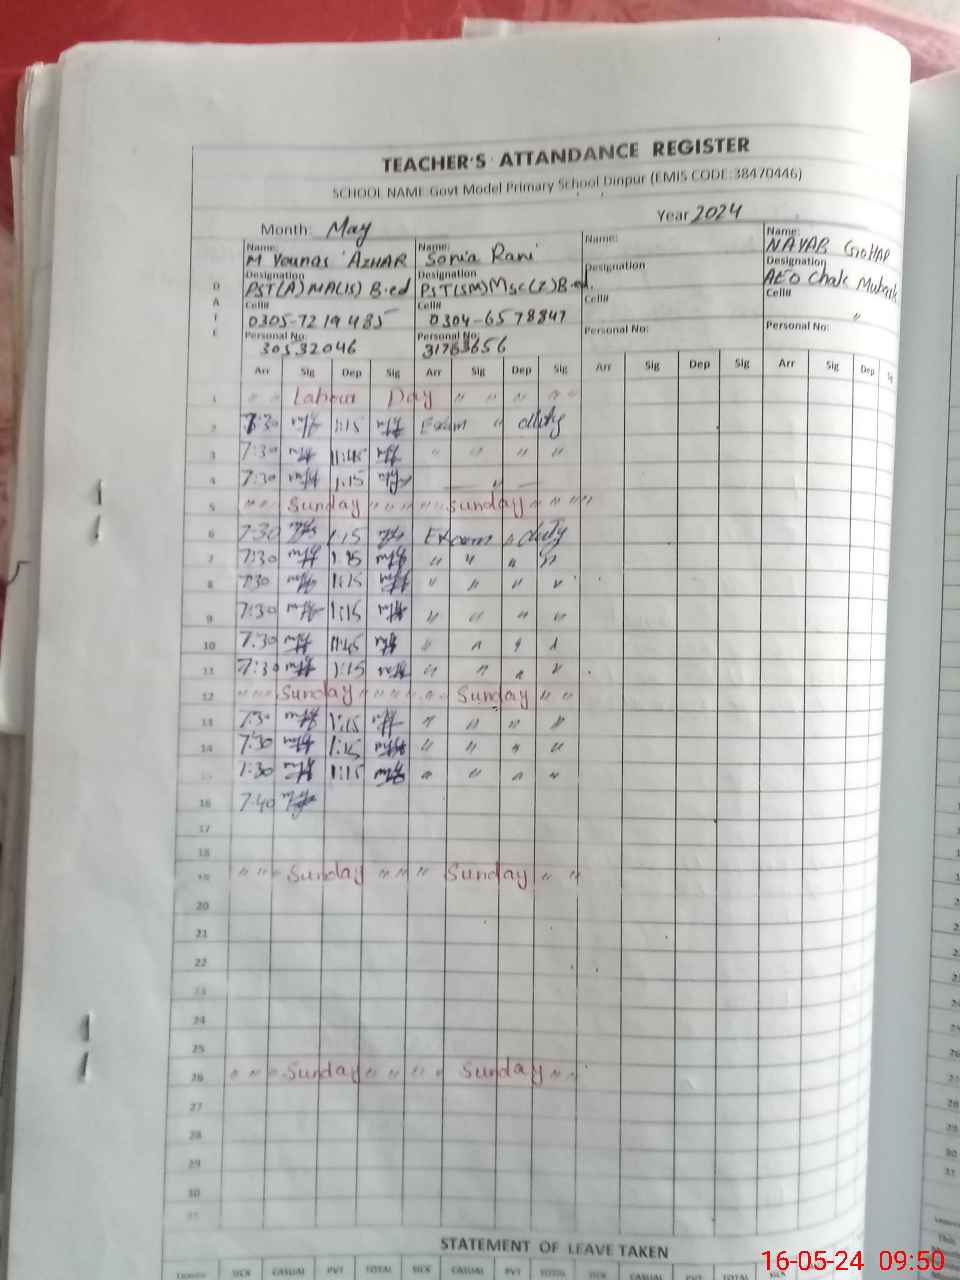 TEACHER'S ATTANDANCE REGISTER
SCHOOL NAME: Govt Model Primary School Dinpur (EMIS CODE: 38470446)
Month: May Year 2024
Name: Name: Name: Name:
M Younas AZHAR Sonia Rani NAYAB GOHAR
Designation Designation Designation Designation
PST(A) MA(IS) B.ed PST(SM) MSc(Z) B.ed. AEO Chak Mubarik
Cell# Cell# Cell# Cell#
0305-7219485 0304-6578847 "
Personal No: Personal No: Personal No: Personal No:
30532046 31763656
DATE
Arr Sig Dep Sig Arr Sig Dep Sig Arr Sig Dep Sig Arr Sig Dep Sig
1 " " Labour Day " " " " "
2 7:30 1:15 Exam " duty
3 7:30 11:45 " " " "
4 7:30 1:15 — " —
5 " " " Sunday " " " " " " Sunday " " " "
6 7:30 1:15 Exam " duty
7 7:30 1:15 " " " "
8 7:30 1:15 " " " "
9 7:30 1:15 " " " "
10 7:30 11:45 " " " "
11 7:30 1:15 " " " "
12 " " " Sunday " " " " " " " Sunday " "
13 7:30 1:15 " " " "
14 7:30 1:15 " " " "
15 7:30 1:15 " " " "
16 7:40
17
18
19 " " " Sunday " " " Sunday " "
20
21
22
23
24
25
26 " " " Sunday " " " " Sunday " "
27
28
29
30
31
STATEMENT OF LEAVE TAKEN
SICK CASUAL PVT TOTAL SICK CASUAL PVT TOTAL SICK CASUAL PVT TOTAL SICK
16-05-24 09:50